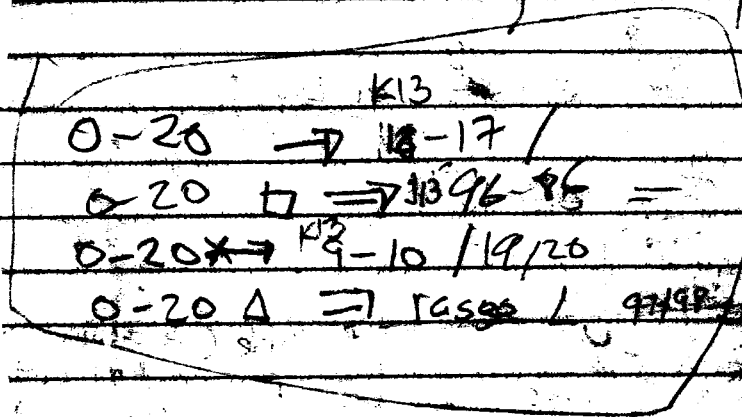 K13
0-20 → 16-17 /
0-20 □ ⇒ 13 96-96 =
K13
0-20 * → 9-10 / 19/20
0-20 △ ⇒ / 97/98